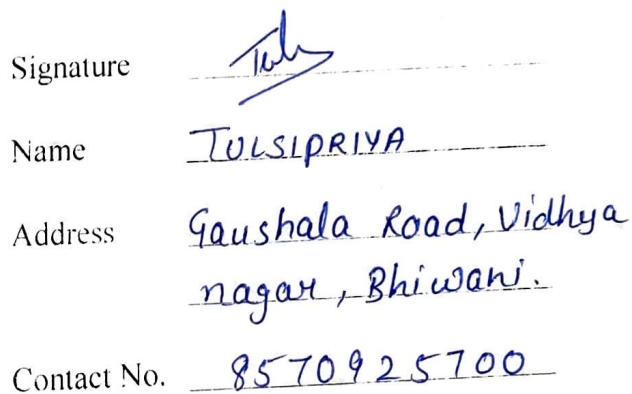 Signature Tuls
Name TULSIPRIYA
Address Gaushala Road, Vidhya
nagar, Bhiwani.
Contact No. 8570925700